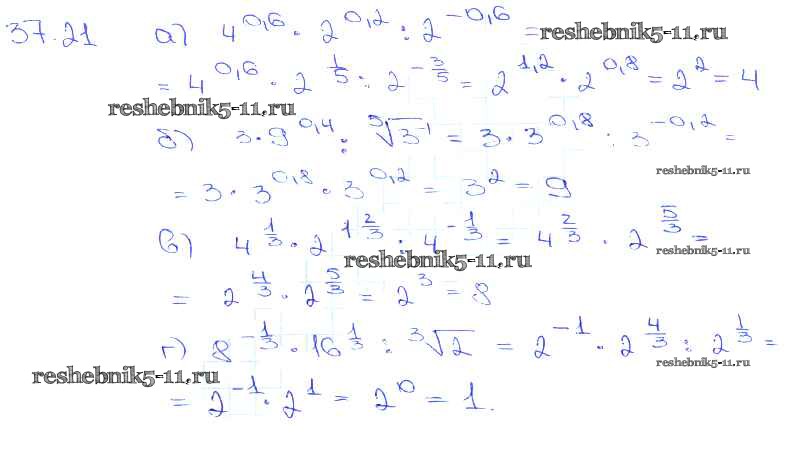 37.21 а) 4^0,6 · 2^0,2 : 2^-0,6 = reshebnik5-11,ru
= 4^0,6 · 2^1/5 : 2^-3/5 = 2^1,2 · 2^0,8 = 2^2 = 4
reshebnik5-11,ru
б) 3 · 9^0,4 : ⁵√3^-1 = 3 · 3^0,8 : 3^-0,2 =
reshebnik5-11.ru
= 3 · 3^0,8 · 3^0,2 = 3^2 = 9
в) 4^1/3 · 2^1 2/3 : 4^-1/3 = 4^2/3 · 2^5/3 =
reshebnik5-11,ru reshebnik5-11.ru
= 2^4/3 · 2^5/3 = 2^3 = 8
г) 8^-1/3 · 16^1/3 : ³√2 = 2^-1 · 2^4/3 : 2^1/3 =
reshebnik5-11,ru reshebnik5-11.ru
= 2^-1 · 2^1 = 2^0 = 1.